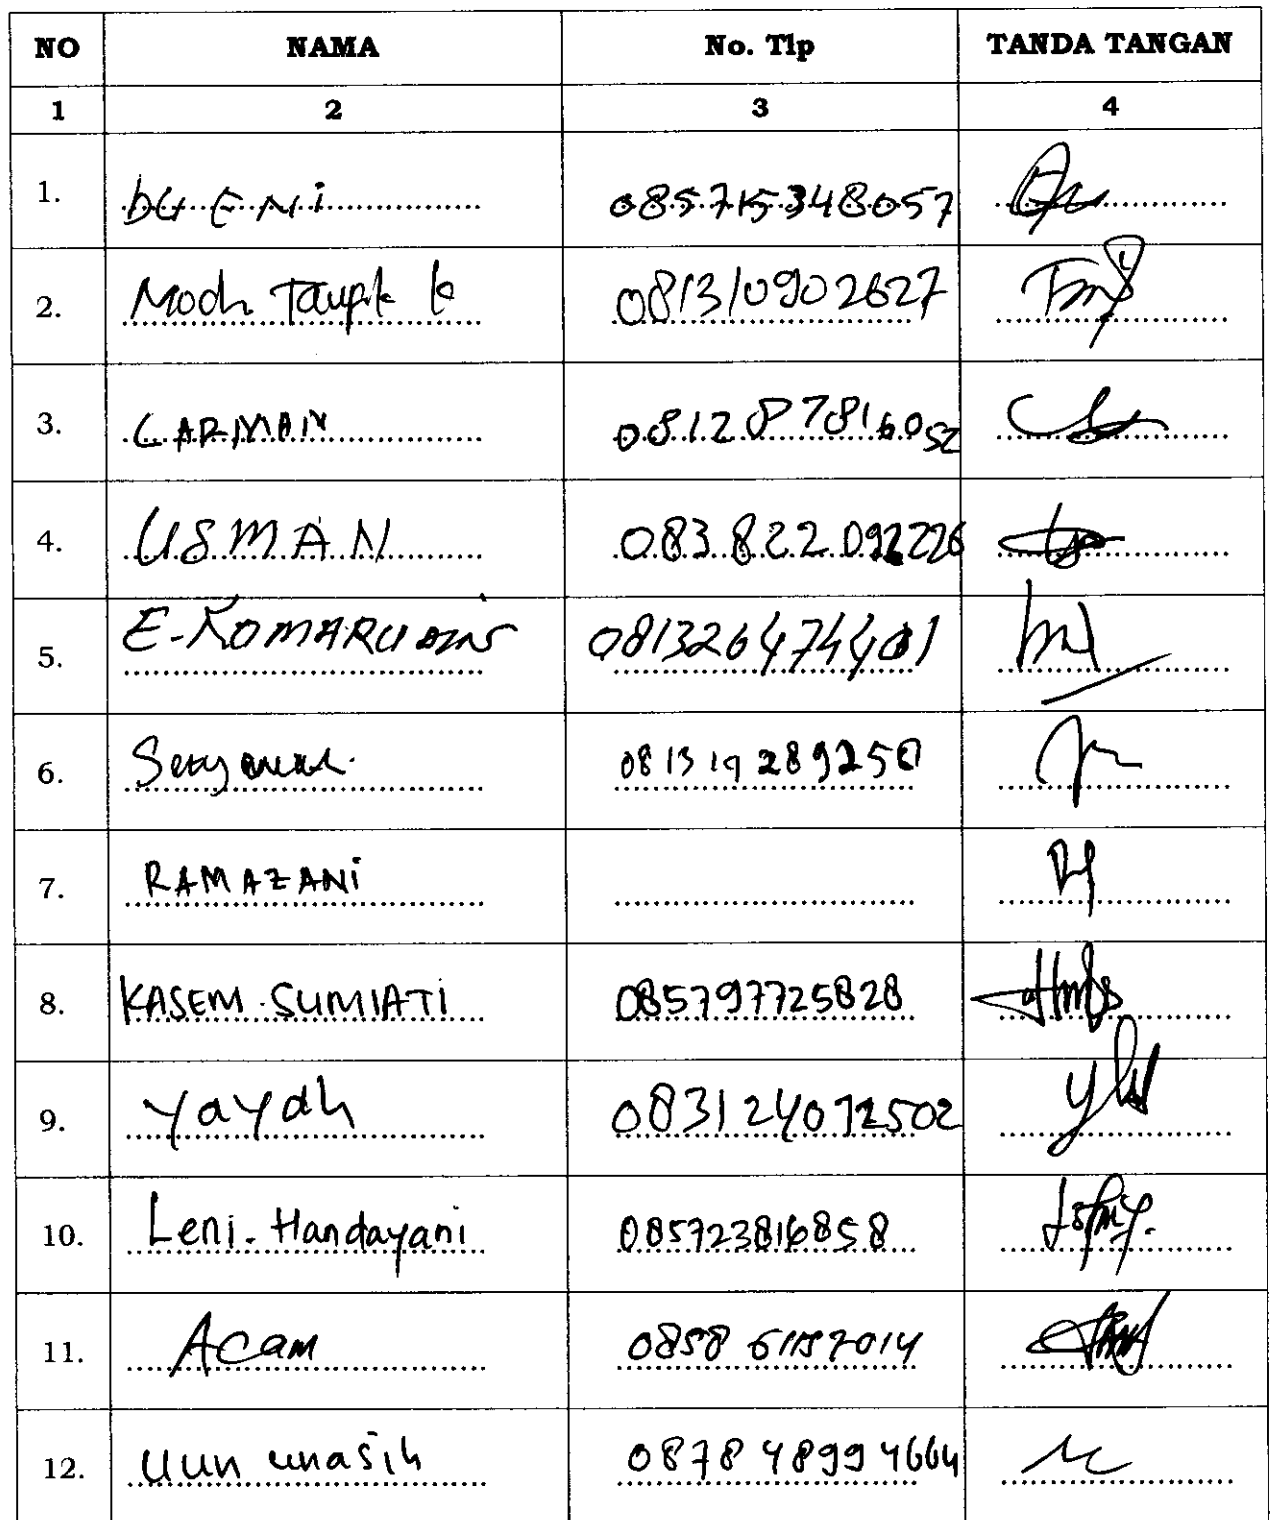 NO NAMA No. Tlp TANDA TANGAN
1 2 3 4
1. 085715348057
2. Moch Taupik k 081310902627
3. CARMAN
4. USMAN 083822092226
5. E-KOMARUDIN 081326474401
6. 081319289250
7. RAMAZANI
8. KASEM SUMIATI 085797725828
9. Yayah 083124072502
10. Leni. Handayani 085723816858
11. Acam 0858
12. Uun unasih 0878 4899 4664